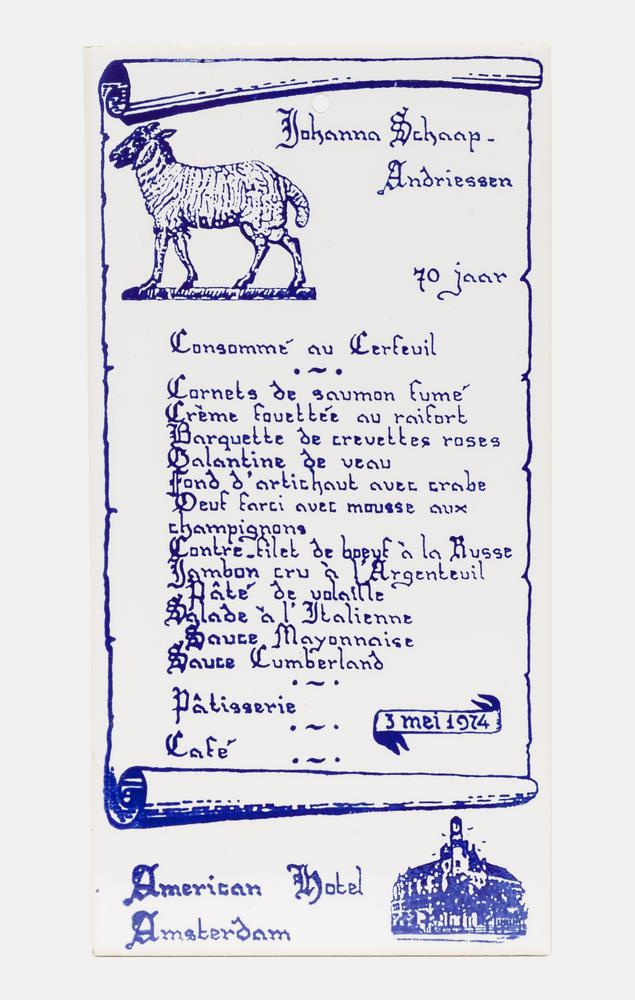 Johanna Schaap-
Andriessen
70 jaar
Consommé au Cerfeuil
Cornets de saumon fumé
Crème fouettée au raifort
Barquette de crevettes roses
Galantine de veau
Fond d'artichaut avec crabe
Oeuf farci avec mousse aux
champignons
Contre-filet de boeuf à la Russe
Jambon cru à l'Argenteuil
Pâté de volaille
Salade à l'Italienne
Sauce Mayonnaise
Sauce Cumberland
Pâtisserie
3 mei 1974
Café
American Hotel
Amsterdam